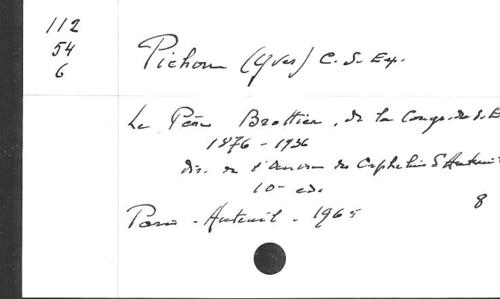 112
54
6
Pichon (Yves) C. S. Esp.
Le Père Brottier, de la Congr. du S. E
1876 - 1936
dir. de l'Oeuvre des Orphelins d'Auteuil
10e ed.
Paris - Auteuil - 1965
8